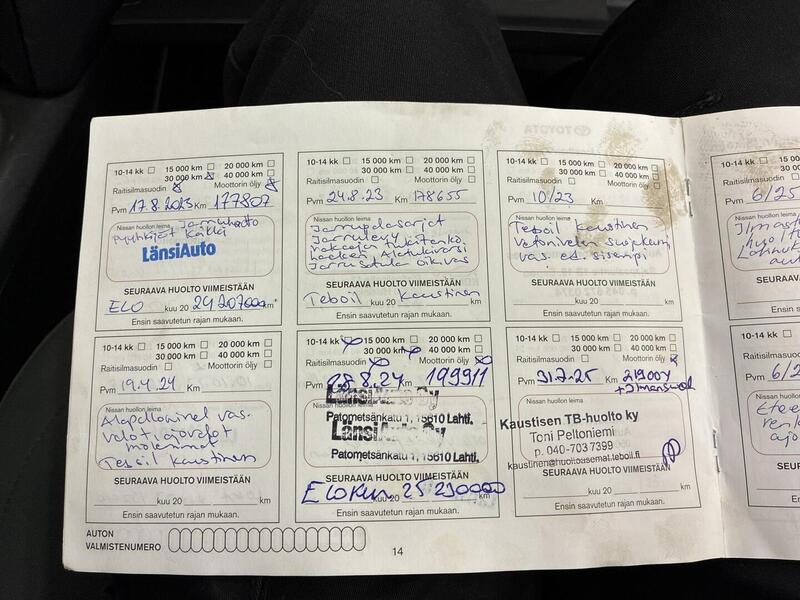 10-14 kk 15 000 km 20 000 km
30 000 km 40 000 km
Raitisilmasuodin Moottorin öljy
Pvm 17.8.2023 Km 177807
Nissan huollon leima
Jarruhuolto
Pyyhkijät Kaikki
LänsiAuto
SEURAAVA HUOLTO VIIMEISTÄÄN
ELO kuu 20 24 207000 km*
Ensin saavutetun rajan mukaan.
10-14 kk 15 000 km 20 000 km
30 000 km 40 000 km
Raitisilmasuodin Moottorin öljy
Pvm 24.8.23 Km 178655
Nissan huollon leima
Jarrupalasarjat
Jarrulevy
Alatukivarsi
Jarrusatula oik.vas
SEURAAVA HUOLTO VIIMEISTÄÄN
Teboil kuu 20 Kaustinen km
Ensin saavutetun rajan mukaan.
10-14 kk 15 000 km 20 000 km
30 000 km 40 000 km
Raitisilmasuodin Moottorin öljy
Pvm 10/23 Km
Nissan huollon leima
Teboil Kaustinen
Vetonivelen suojakumi
vas. et. sisempi
SEURAAVA HUOLTO VIIMEISTÄÄN
kuu 20 km
Ensin saavutetun rajan mukaan.
10-14 kk 15 000
30 000
Raitisilmasuodin
Pvm 6/25
Nissan huollon leima
SEURAAVA HUOLTO
Ensin saavutetun
10-14 kk 15 000 km 20 000 km
30 000 km 40 000 km
Raitisilmasuodin Moottorin öljy
Pvm 19.4.24 Km
Nissan huollon leima
Alapallonivel vas.
molemmat
Teboil Kaustinen
SEURAAVA HUOLTO VIIMEISTÄÄN
kuu 20 km
Ensin saavutetun rajan mukaan.
10-14 kk 15 000 km 20 000 km
30 000 km 40 000 km
Raitisilmasuodin Moottorin öljy
Pvm 28.8.24 Km 199911
LänsiAuto Oy
Patometsänkatu 1, 15610 Lahti.
LänsiAuto Oy
Patometsänkatu 1, 15610 Lahti.
SEURAAVA HUOLTO VIIMEISTÄÄN
ELOKUU kuu 20 25 230000 km
Ensin saavutetun rajan mukaan.
10-14 kk 15 000 km 20 000 km
30 000 km 40 000 km
Raitisilmasuodin Moottorin öljy
Pvm 31.7-25 Km 219004
Nissan huollon leima
Kaustisen TB-huolto ky
Toni Peltoniemi
p. 040-703 7399
kaustinen@huoltoasemat.teboil.fi
SEURAAVA HUOLTO VIIMEISTÄÄN
kuu 20 km
Ensin saavutetun rajan mukaan.
10-14 kk
30
Raitisilmasuodin
Pvm
Nissan huollon leima
SEURAAVA HUOLTO
Ensin saavutetun
AUTON
VALMISTENUMERO
14